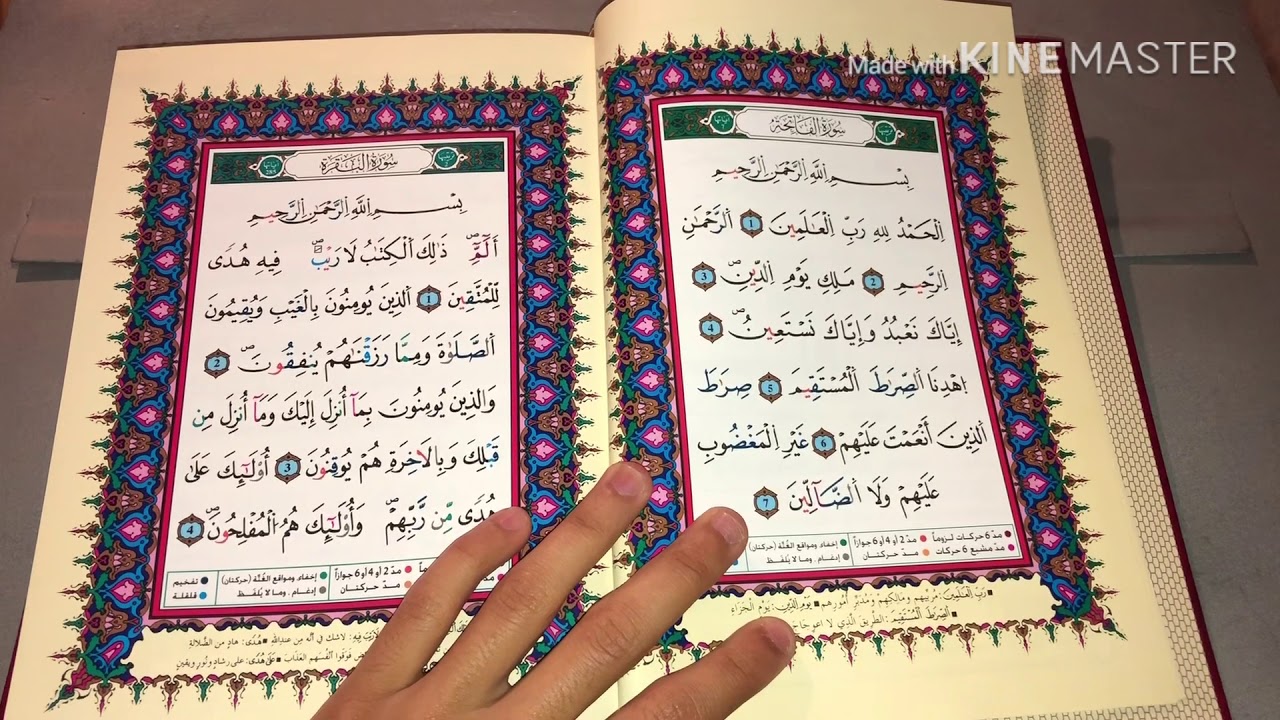 Made with KINEMASTER
سُورَةُ الفَاتِحَةِ
بِسْمِ اِللَّهِ اِلرَّحْمَٰنِ اِلرَّحِيمِ
اِلْحَمْدُ لِلهِ رَبِّ اِلْعَٰلَمِينَ 1 اَلرَّحْمَٰنِ
اِلرَّحِيمِ 2 مَلِكِ يَوْمِ اِلدِّينِۖ 3
إِيَّاكَ نَعْبُدُ وَإِيَّاكَ نَسْتَعِينُۖ 4
اُهْدِنَا اَلصِّرَٰطَ اَلْمُسْتَقِيمَ 5 صِرَٰطَ
اَلذِينَ أَنْعَمْتَ عَلَيْهِمْ 6 غَيْرِ اِلْمَغْضُوبِ
عَلَيْهِمْ وَلَا اَلضَّآلِّينَ 7
مدّ 6 حركات لزوماً مدّ 2 أو 4 أو 6 جوازاً إخفاء ومواقع الغُنَّة (حركتان)
مدّ مشبع 6 حركات مدّ حركتان إدغام . وما لا يُلفَظ
رَبِّ الْعَٰلَمِينَ: مُربِّيهم ومالكهم ومُدبّر أمورهم يَوْمِ الدِّينِ: يوم الجزاء
الصِّرَٰطَ الْمُسْتَقِيمَ: الطريق الذي لا اعوجاج
سُورَةُ البَقَرَةِ
285
بِسْمِ اِللَّهِ اِلرَّحْمَٰنِ اِلرَّحِيمِ
أَلَٓمِّٓۖ ذَٰلِكَ اَلْكِتَٰبُ لَا رَيْبَۖ فِيهِ هُدىٗ
لِّلْمُتَّقِينَ 1 اَلذِينَ يُومِنُونَ بِالْغَيْبِ وَيُقِيمُونَ
اَلصَّلَوٰةَ وَمِمَّا رَزَقْنَٰهُمْ يُنفِقُونَۖ 2
وَالذِينَ يُومِنُونَ بِمَآ أُنزِلَ إِلَيْكَ وَمَآ أُنزِلَ مِن
قَبْلِكَ وَبِالَاخِرَةِ هُمْ يُوقِنُونَ 3 أُوْلَٰٓئِكَ عَلَىٰ
هُدىٗ مِّن رَّبِّهِمْۖ وَأُوْلَٰٓئِكَ هُمُ اُلْمُفْلِحُونَۖ 4
مدّ 2 أو 4 أو 6 جوازاً إخفاء ومواقع الغُنَّة (حركتان) تفخيم
مدّ حركتان إدغام . وما لا يُلفَظ قلقلة
لَا رَيْبَ فِيهِ: لاشك في أنّه من عند الله هُدىً: هادٍ من الضلالة
فوقوا أنفسهم العذاب عَلَىٰ هُدىً: على رشادٍ ونورٍ ويقين